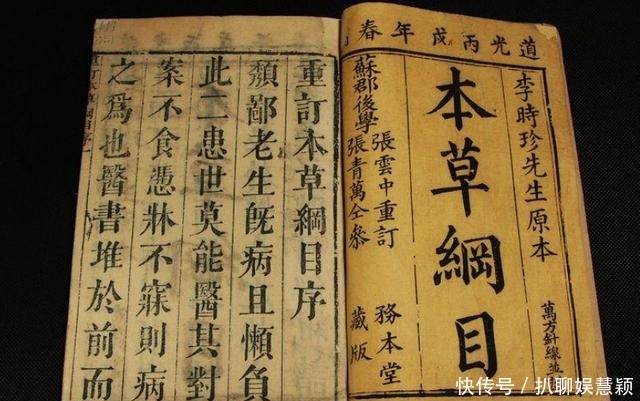 道光丙戌年春
李時珍先生原本
萬方針線並
本草綱目
蘇郡後學
張雲中重訂
張青萬仝參
務本堂
藏版
重訂本草綱目序
頹鄙老生旣病且懶負
此二患世莫能醫其對
案不食憑牀不寐則病
之爲也醫書堆於前而
快传号 / 扒聊娱慧颖